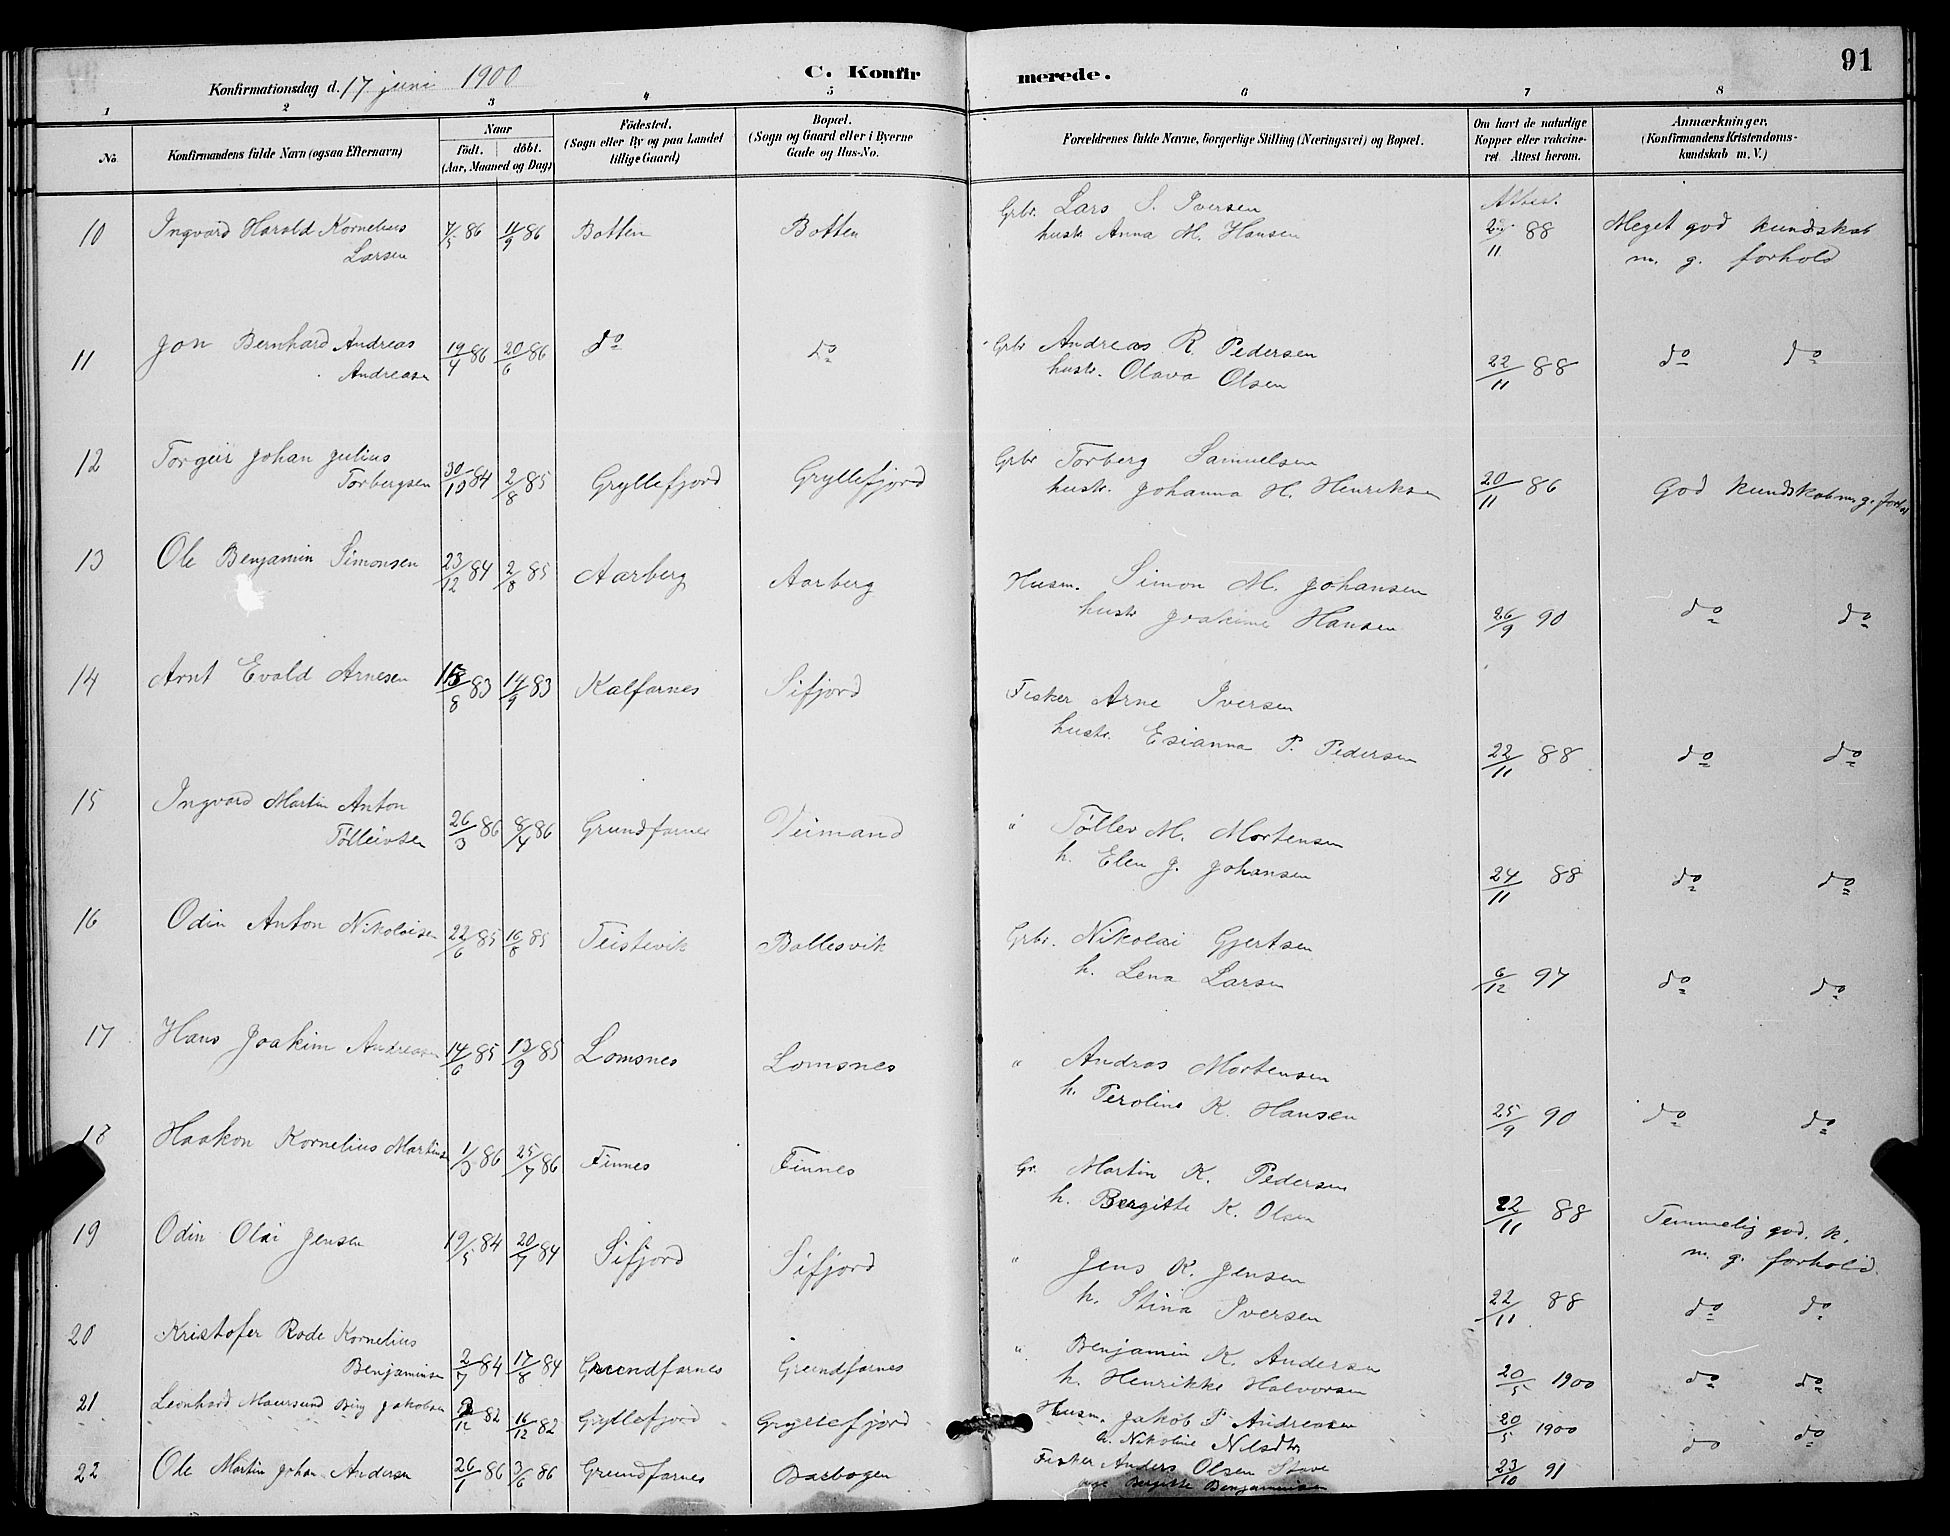 91
Konfirmationsdag d. 17 juni 1900 C. Konfir merede.
1 2 3 4 5 6 7 8
No.
Konfirmandens fulde Navn (ogsaa Efternavn)
Naar
födt. döbt.
(Aar, Maaned og Dag)
Födested.
(Sogn eller By og paa Landet
tillige Gaard)
Bopæl.
(Sogn og Gaard eller i Byerne
Gade og Hus-No.
Forældrenes fulde Navne, borgerlige Stilling (Næringsvei) og Bopæl.
Om havt de naturlige
Kopper eller vakcine-
ret. Attest herom.
Anmærkninger.
(Konfirmandens Kristendoms-
kundskab m. V.)
10 Ingvard Harald Kornelius 7/5 86 11/9 86 Botten Botten Grbr. Lars S. Iversen Attest. Meget god kundskab
Larsen hustr. Anna M. Hansen /11 88 m. g. forhold
11 Jon Bernhard Andreas 19/4 86 20/6 86 do do Grbr Andreas R. Pedersen 22/11 88 do do
Andreasen hustr. Olava Olsen
12 Torgeir Johan Julius 30/10 84 2/8 85 Gryllefjord Gryllefjord Grbr Torberg Samuelsen 20/11 86 God kundskab m. g. forhol
Torbergsen hustr. Johanna H. Henriksen
13 Ole Benjamin Simonsen 23/12 84 2/8 85 Aarberg Aarberg Husm. Simon M. Johansen
hustr Joakime Hansen 26/9 90 do do
14 Arnt Evald Arnesen /8 83 14/9 83 Kalfarnes Sifjord Fisker Arne Iversen
hustr. Esianna P. Pedersen 22/11 88 do do
15 Ingvard Martin Anton 26/3 86 8/4 86 Grundfarnes Veimand " Tollev M. Mortensen
Tølleivsen h. Elen J. Johansen 24/11 88 do do
16 Odin Anton Nikolaisen 22/6 85 16/8 85 Teistevik Ballesvik Grbr. Nikolai Gjertsen
h. Lena Larsen 6/12 97 do do
17 Hans Joakim Andreasen 14/6 85 13/9 85 Lomsnes Lomsnes " Andras Mortensen
h. Peroline K. Hansen 25/9 90 do do
18 Haakon Kornelius Martinsen 1/3 86 25/7 86 Finnes Finnes Gr. Martin K. Pedersen
h. Bergitte K. Olsen 22/11 88 Temmelig god. k.
m. g. forhold.
19 Odin Olai Jensen 19/5 84 20/7 84 Sifjord Sifjord " Jens K. Jensen
h. Stina Iversen 22/11 88 do do
20 Kristofer Rode Kornelius " Benjamin K. Andersen
Benjaminsen 2/7 84 17/8 84 Grundfarnes Grundfarnes h. Henrikke Halvorsen 20/5 1900 do do
21 Leonhard Maursund Jakobsen /12 82 16/12 82 Gryllefjord Gryllefjord Husm. Jakob P. Andreasen 20/5 1900 do do
h. Nikoline Nilsdtr
22 Ole Martin Johan Andersen 26/1 86 3/6 86 Grundfarnes Barbogen Fisker Anders Olsen Stave 23/10 91
Bergitte Benjaminsen